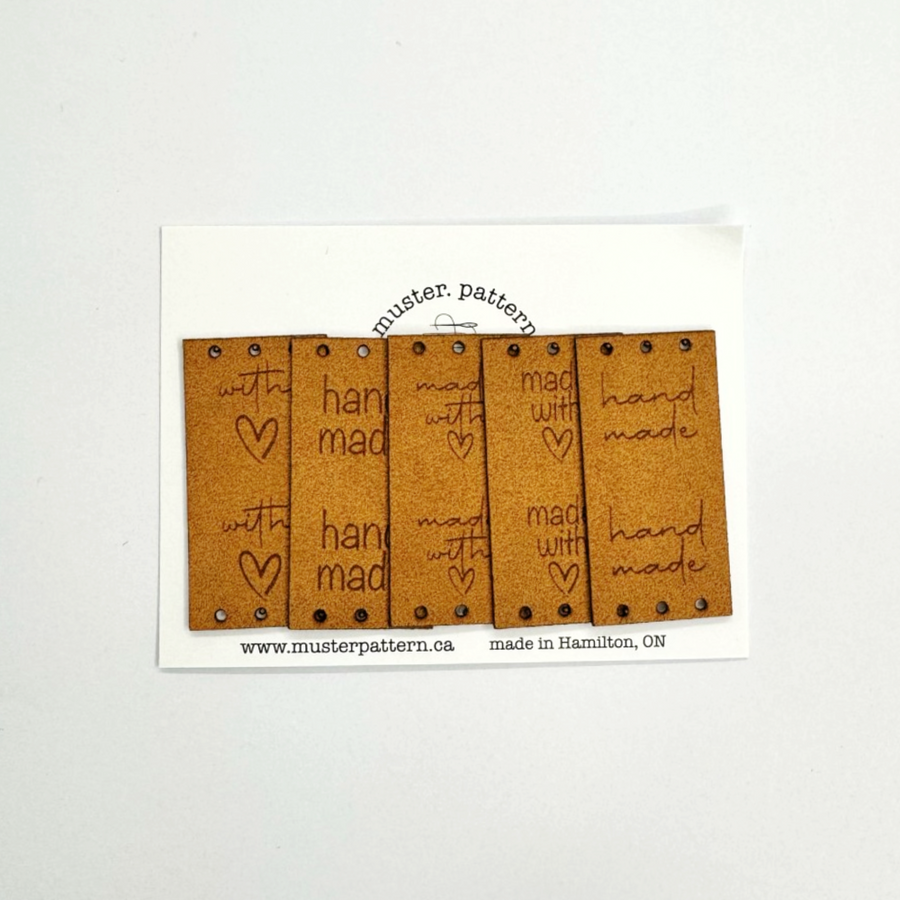 muster. pattern
with
♡
with
♡
han
mad
han
mad
mad
with
♡
mad
with
♡
mad
with
♡
mad
with
♡
hand
made
hand
made
www.musterpattern.ca made in Hamilton, ON